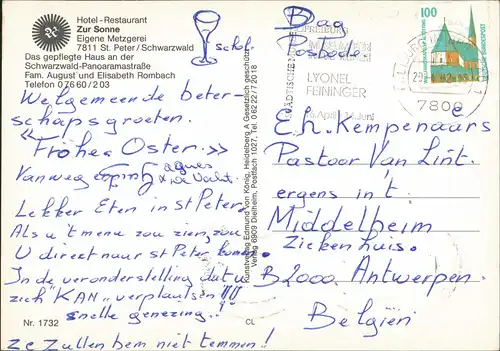 Hotel-Restaurant
Zur Sonne
Eigene Metzgerei
7811 St. Peter/Schwarzwald
Das gepflegte Haus an der
Schwarzwald-Panoramastraße
Fam. August und Elisabeth Rombach
Telefon 0 76 60 / 2 03
Welgemeende beter-
schapsgroeten.
"Frohe Ostern"
Vanweg
agnes
Lekker Eten in St Peter.
Als u 't menu zou zien, zou
U direct naar St Peter komen.
In de veronderstelling dat u
zich "KAN" verplaatsen !!!
snelle genezing..!
Ze zullen hem niet temmen!
Nr. 1732
CL
Kunstverlag Edmund von König, Heidelberg Ⓐ Gesetzlich geschützt
Verlag 6909 Dielheim, Postfach 1027, Tel. 0 62 22 / 7 20 18
FREIBURG
STÄDTISCHE
MUSEUM
LYONEL
FEININGER
April
Juni
7800
100
DEUTSCHE BUNDESPOST
E.h. Kempenaers
Pastoor Van Lint.
ergens in 't
Middelheim
Ziekenhuis.
B2000 Antwerpen.
Belgiën